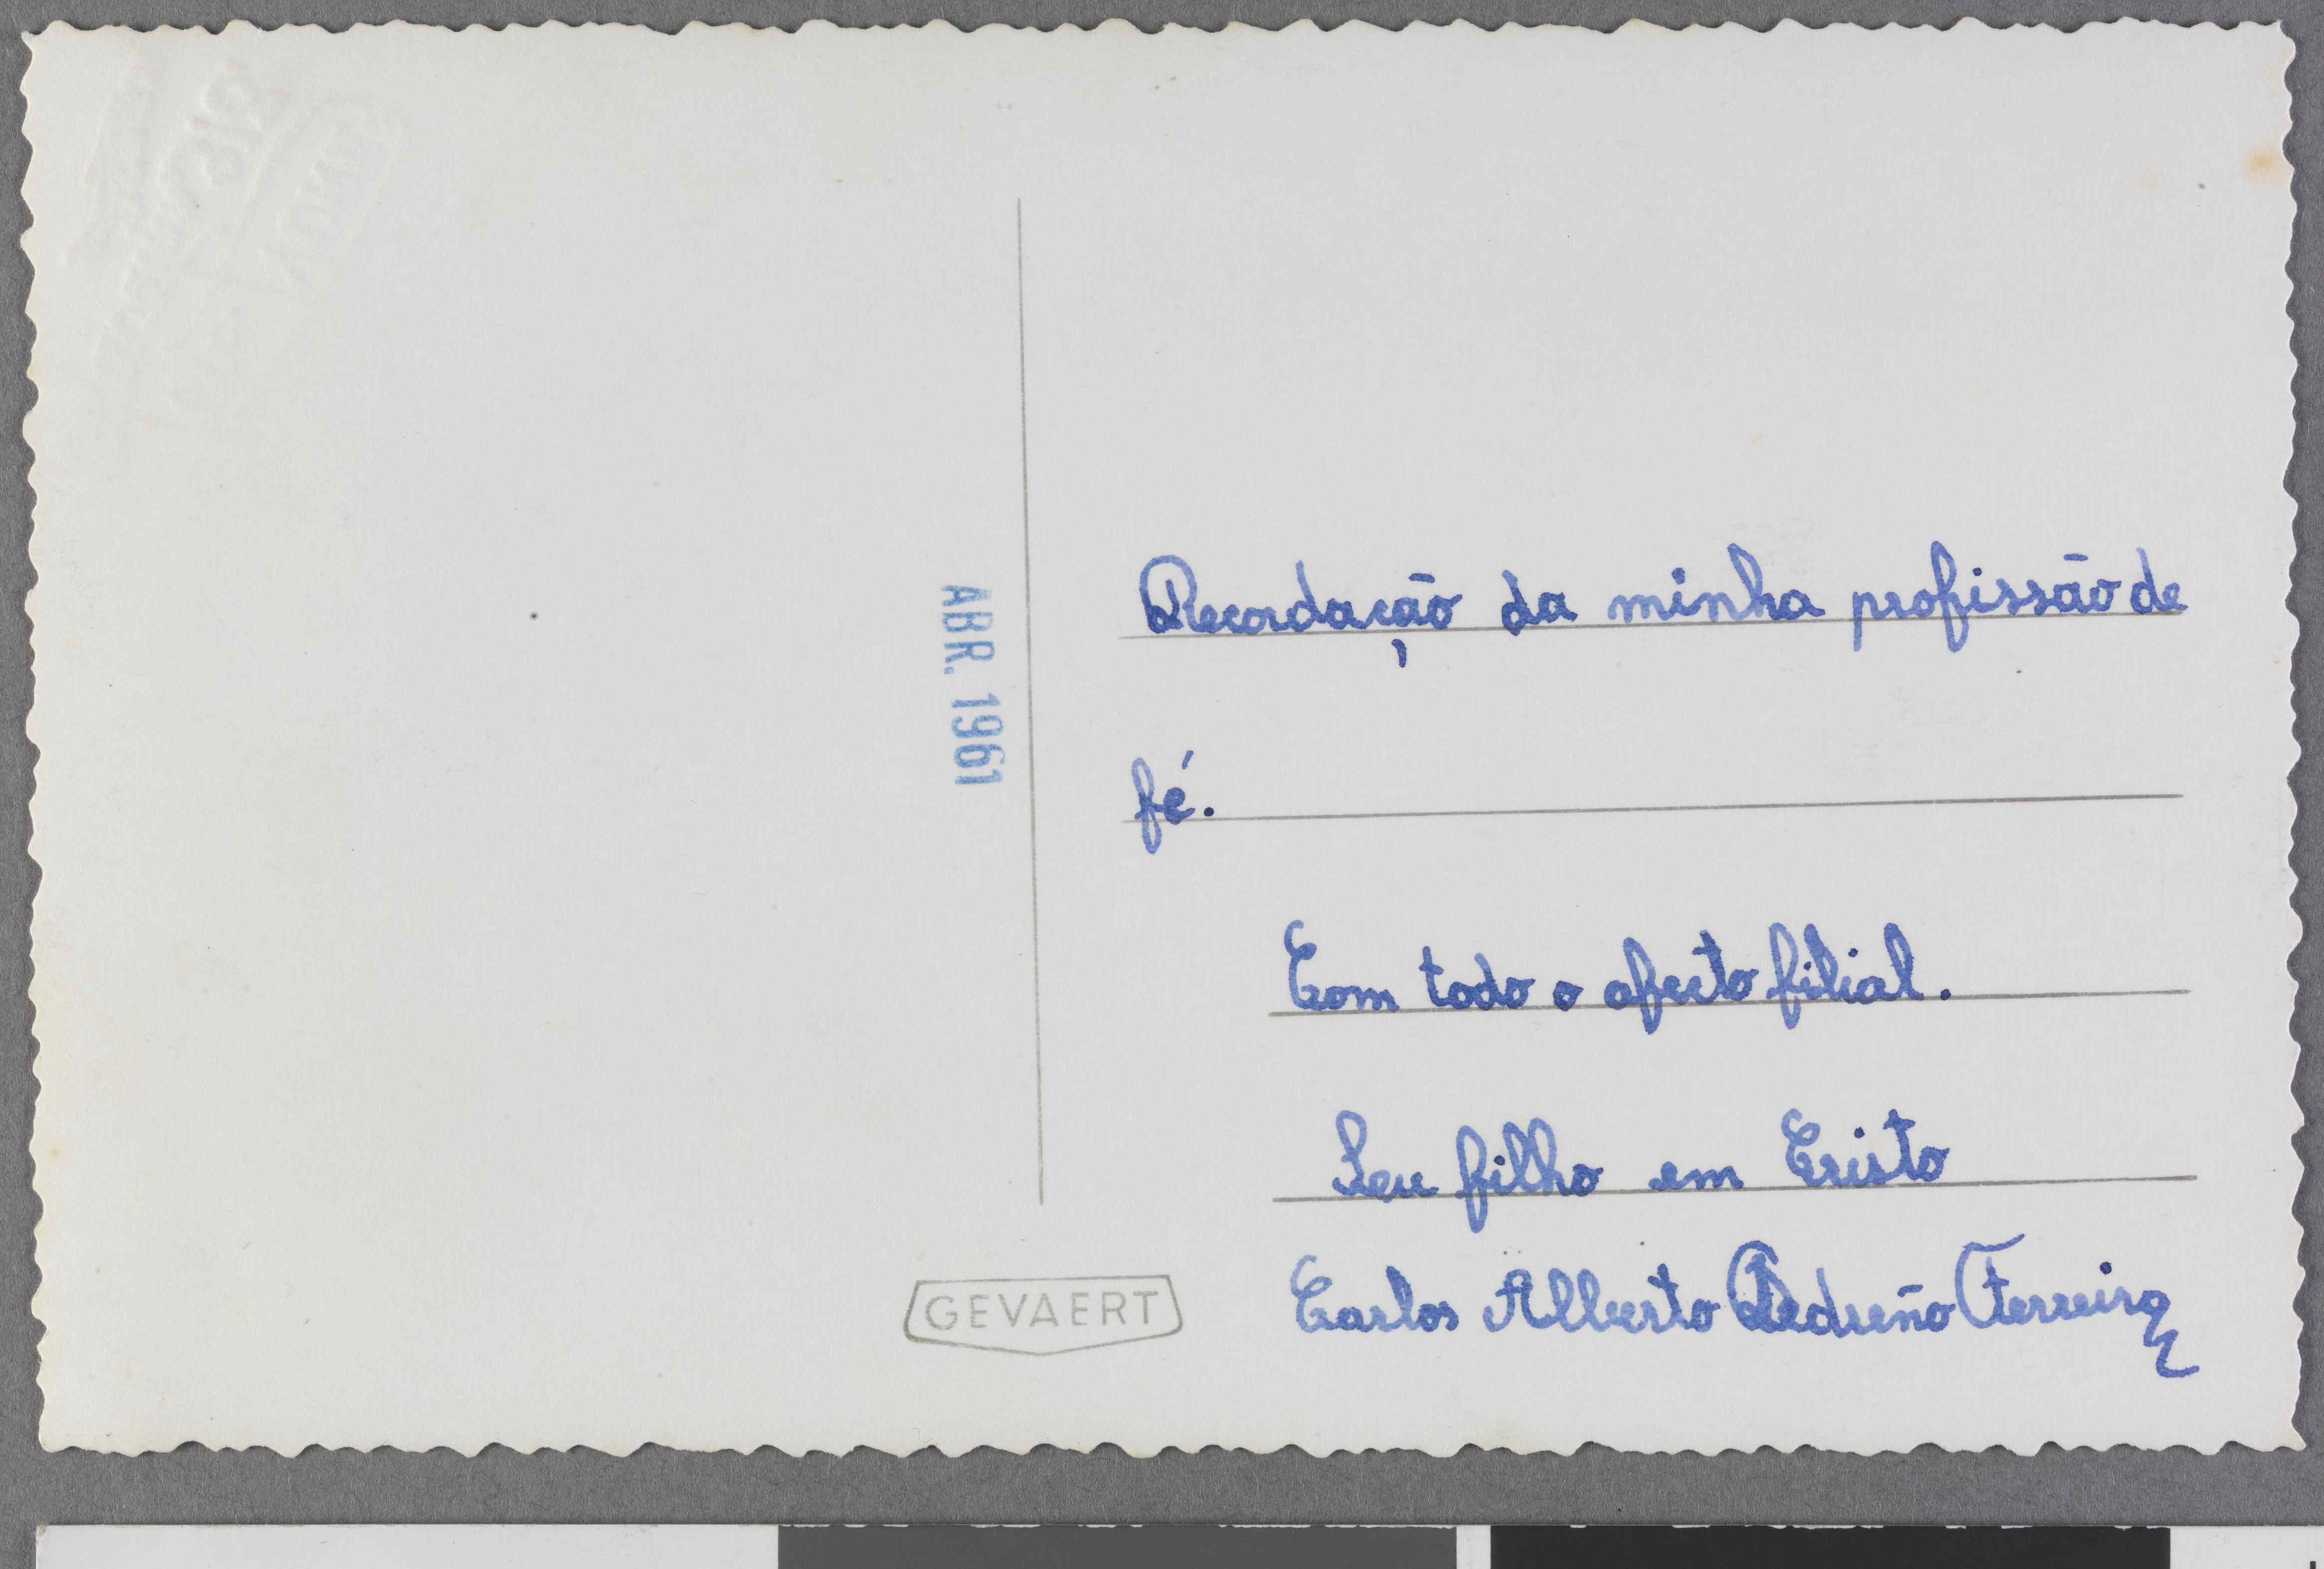 ABR. 1961
Recordação da minha profissão de
fé.
Com todo o afecto filial.
Seu filho em Cristo
Carlos Alberto Pedreño Ferreira
GEVAERT